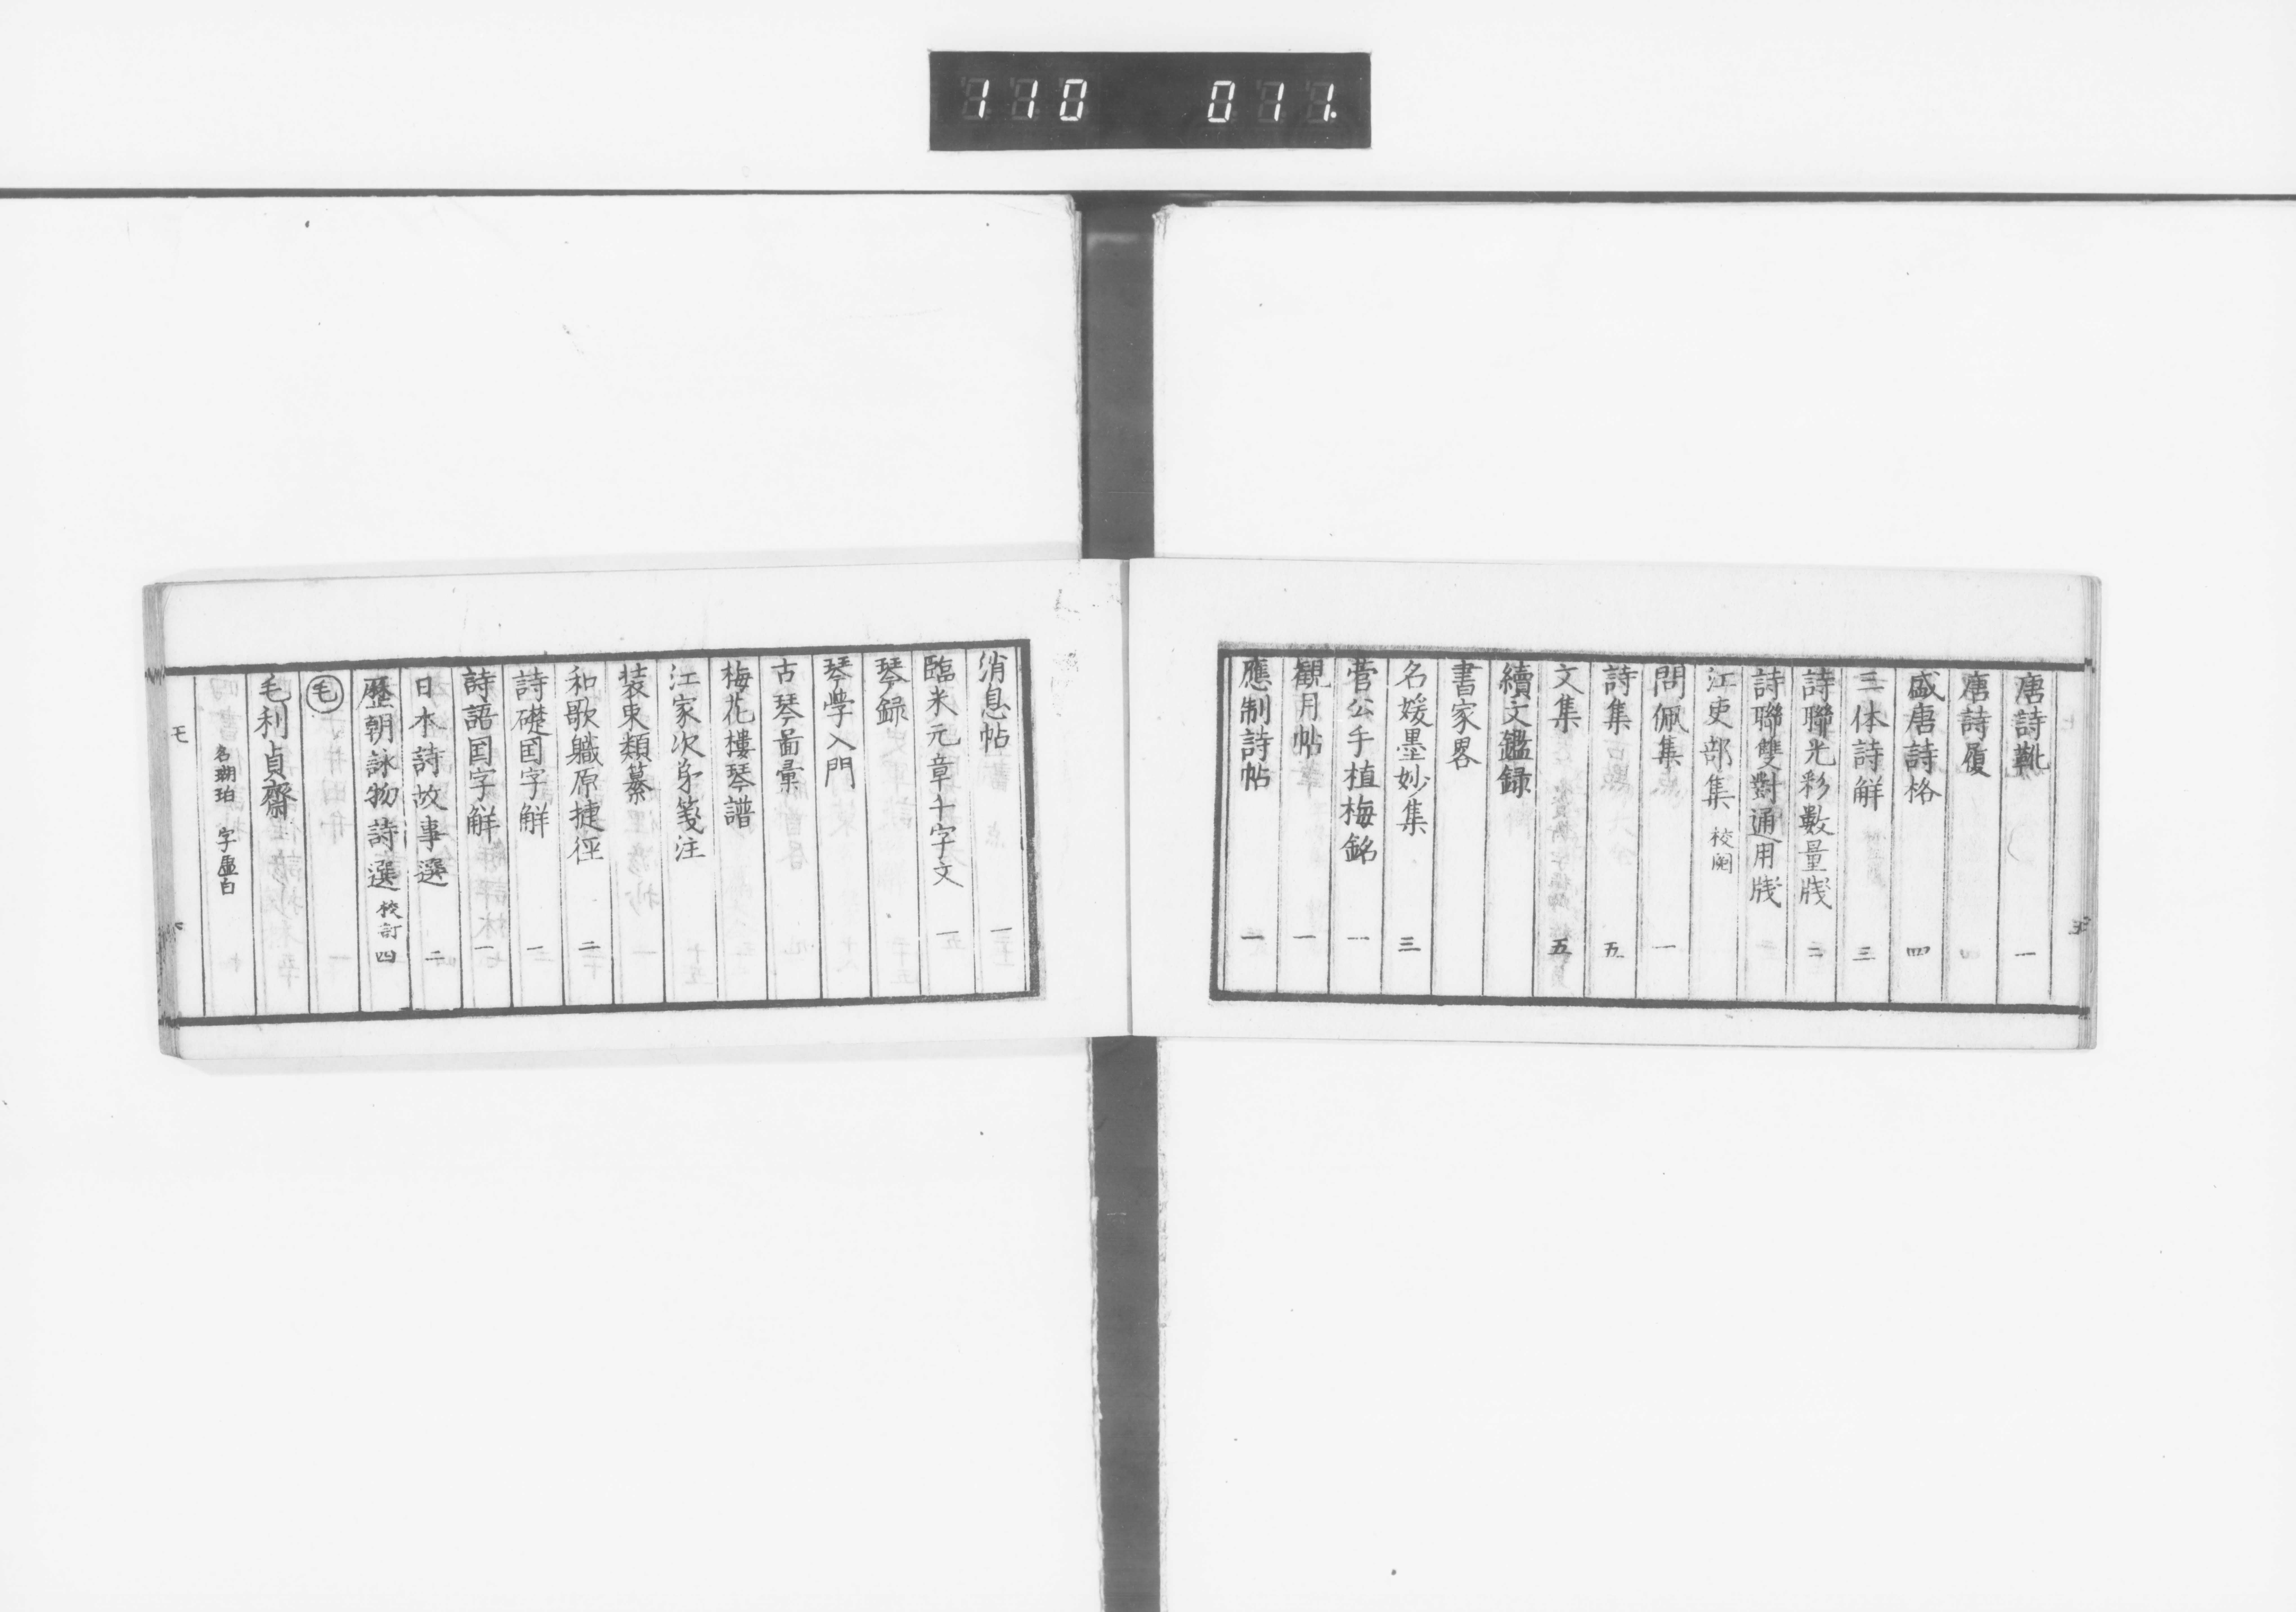 110 011.
唐詩靴 一
唐詩履 四
盛唐詩格 四
三体詩解 三
詩聯光彩數量牋 二
詩聯雙對通用牋
江吏部集 校閲
問佩集 一
詩集 五
文集 五
續文鑑録
書家畧
名媛墨妙集 三
菅公手植梅銘 一
觀月帖 一
應制詩帖 一
消息帖 一
臨米元章千字文 一
琴録
琴学入門
古琴啚彙
梅花樓琴譜
江家次㐧箋注
装束類纂
和歌軄原捷徑 二
詩礎国字解 一
詩語国字解 一
日本詩故事選 二
歷朝詠物詩選 校訂 四
毛
毛利貞齋
名瑚珀 字虛白
モ